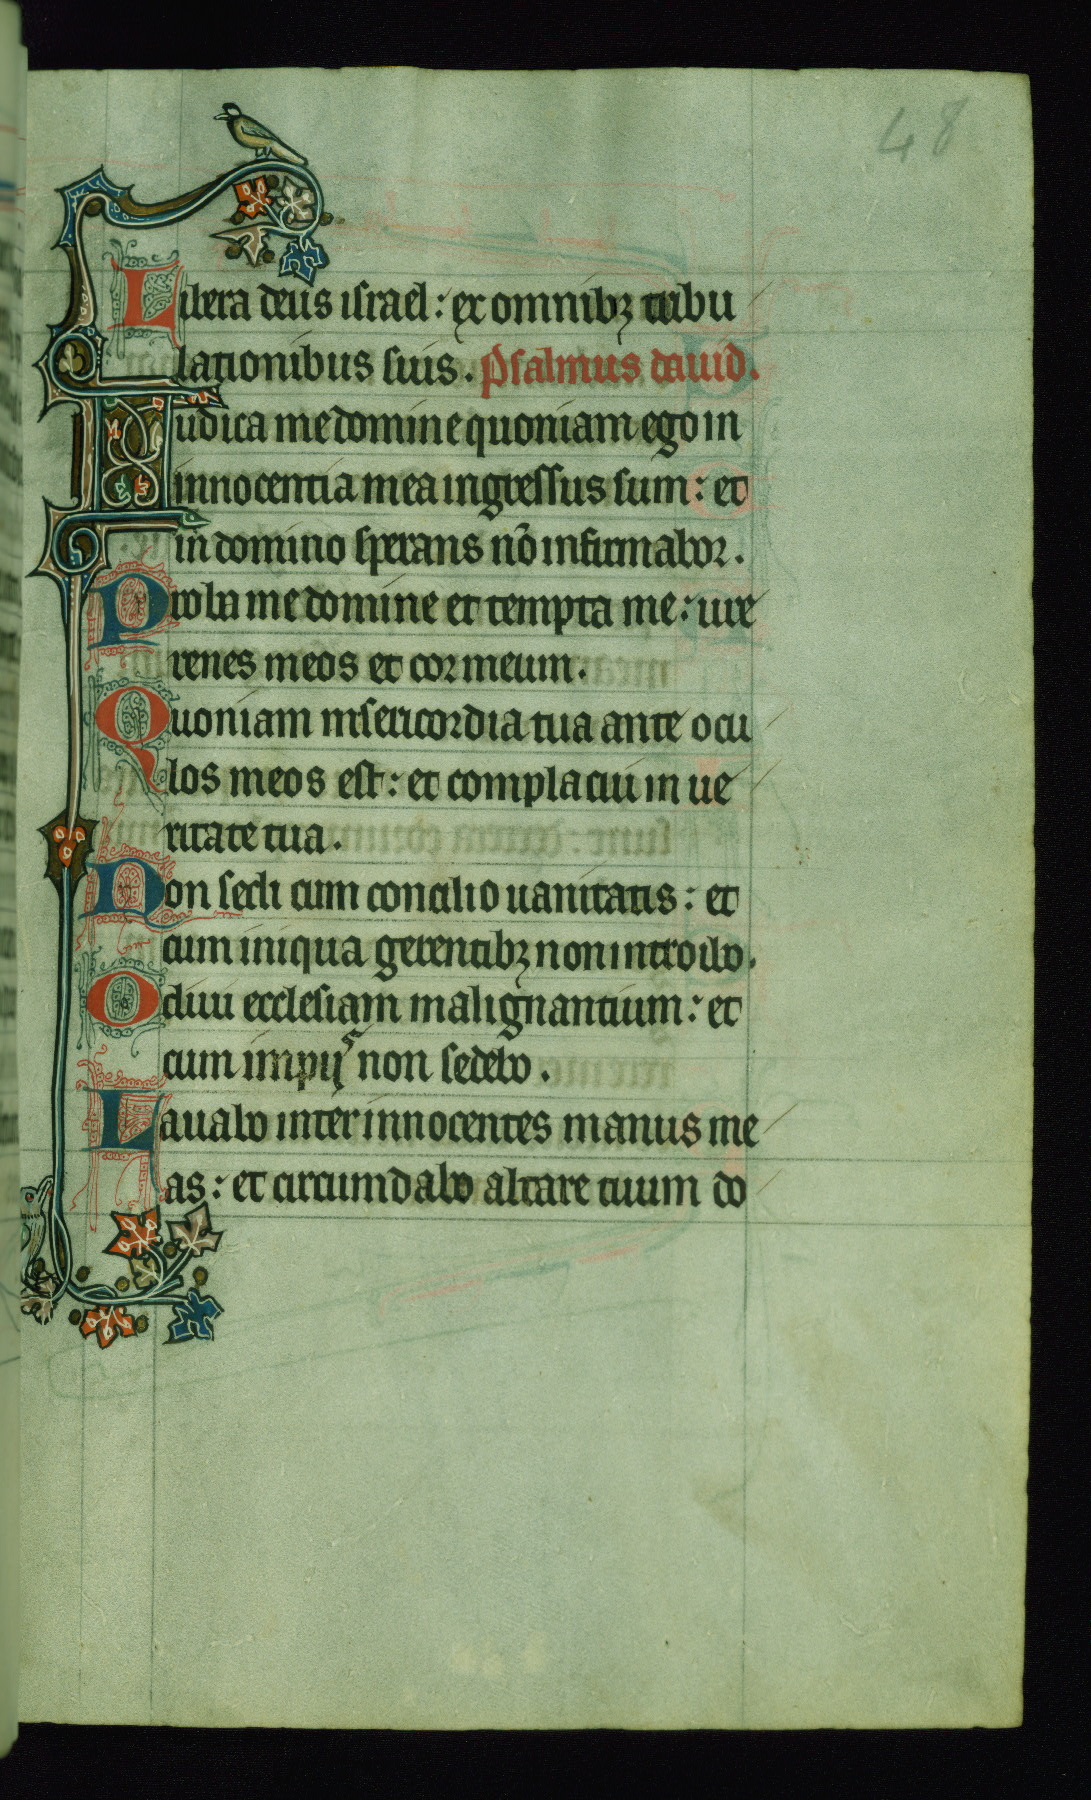 48
Libera deus israel: ex omnibꝫ tribu
lationibus suis. Psalmus dauid.
Iudica me domine quoniam ego in
innocentia mea ingressus sum: et
in domino sperans nō infirmabor.
Proba me domine et tempta me: ure
renes meos et cor meum.
Quoniam misericordia tua ante ocu
los meos est: et complacui in ue
ritate tua.
Non sedi cum concilio uanitatis: et
cum iniqua gerentibꝫ non introibo.
Odiui ecclesiam malignantium: et
cum impijs non sedebo.
Lauabo inter innocentes manus me
as: et circumdabo altare tuum do